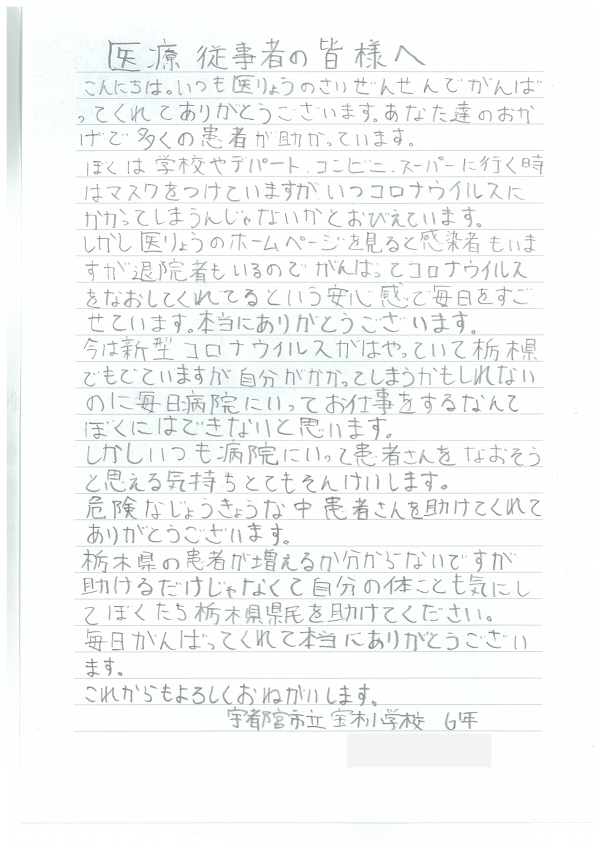 医療従事者の皆様へ
こんにちは。いつも医りょうのさいぜんせんでがんば
ってくれてありがとうございます。あなた達のおか
げで多くの患者が助かっています。
ぼくは学校やデパート、コンビニ、スーパーに行く時
はマスクをつけていますがいつコロナウイルスに
かかってしまうんじゃないかとおびえています。
しかし医りょうのホームページを見ると感染者もいま
すが退院者もいるのでがんばってコロナウイルス
をなおしてくれてるという安心感で毎日をすご
せています。本当にありがとうございます。
今は新型コロナウイルスがはやっていて栃木県
でもでていますが自分がかかってしまうかもしれない
のに毎日病院にいってお仕事をするなんて
ぼくにはできないと思います。
しかしいつも病院にいって患者さんをなおそう
と思える気持ちとてもそんけいします。
危険なじょうきょうな中患者さんを助けてくれて
ありがとうございます。
栃木県の患者が増えるか分からないですが
助けるだけじゃなくて自分の体ことも気にし
てぼくたち栃木県県民を助けてください。
毎日がんばってくれて本当にありがとうござい
ます。
これからもよろしくおねがいします。
宇都宮市立宝木小学校 6年